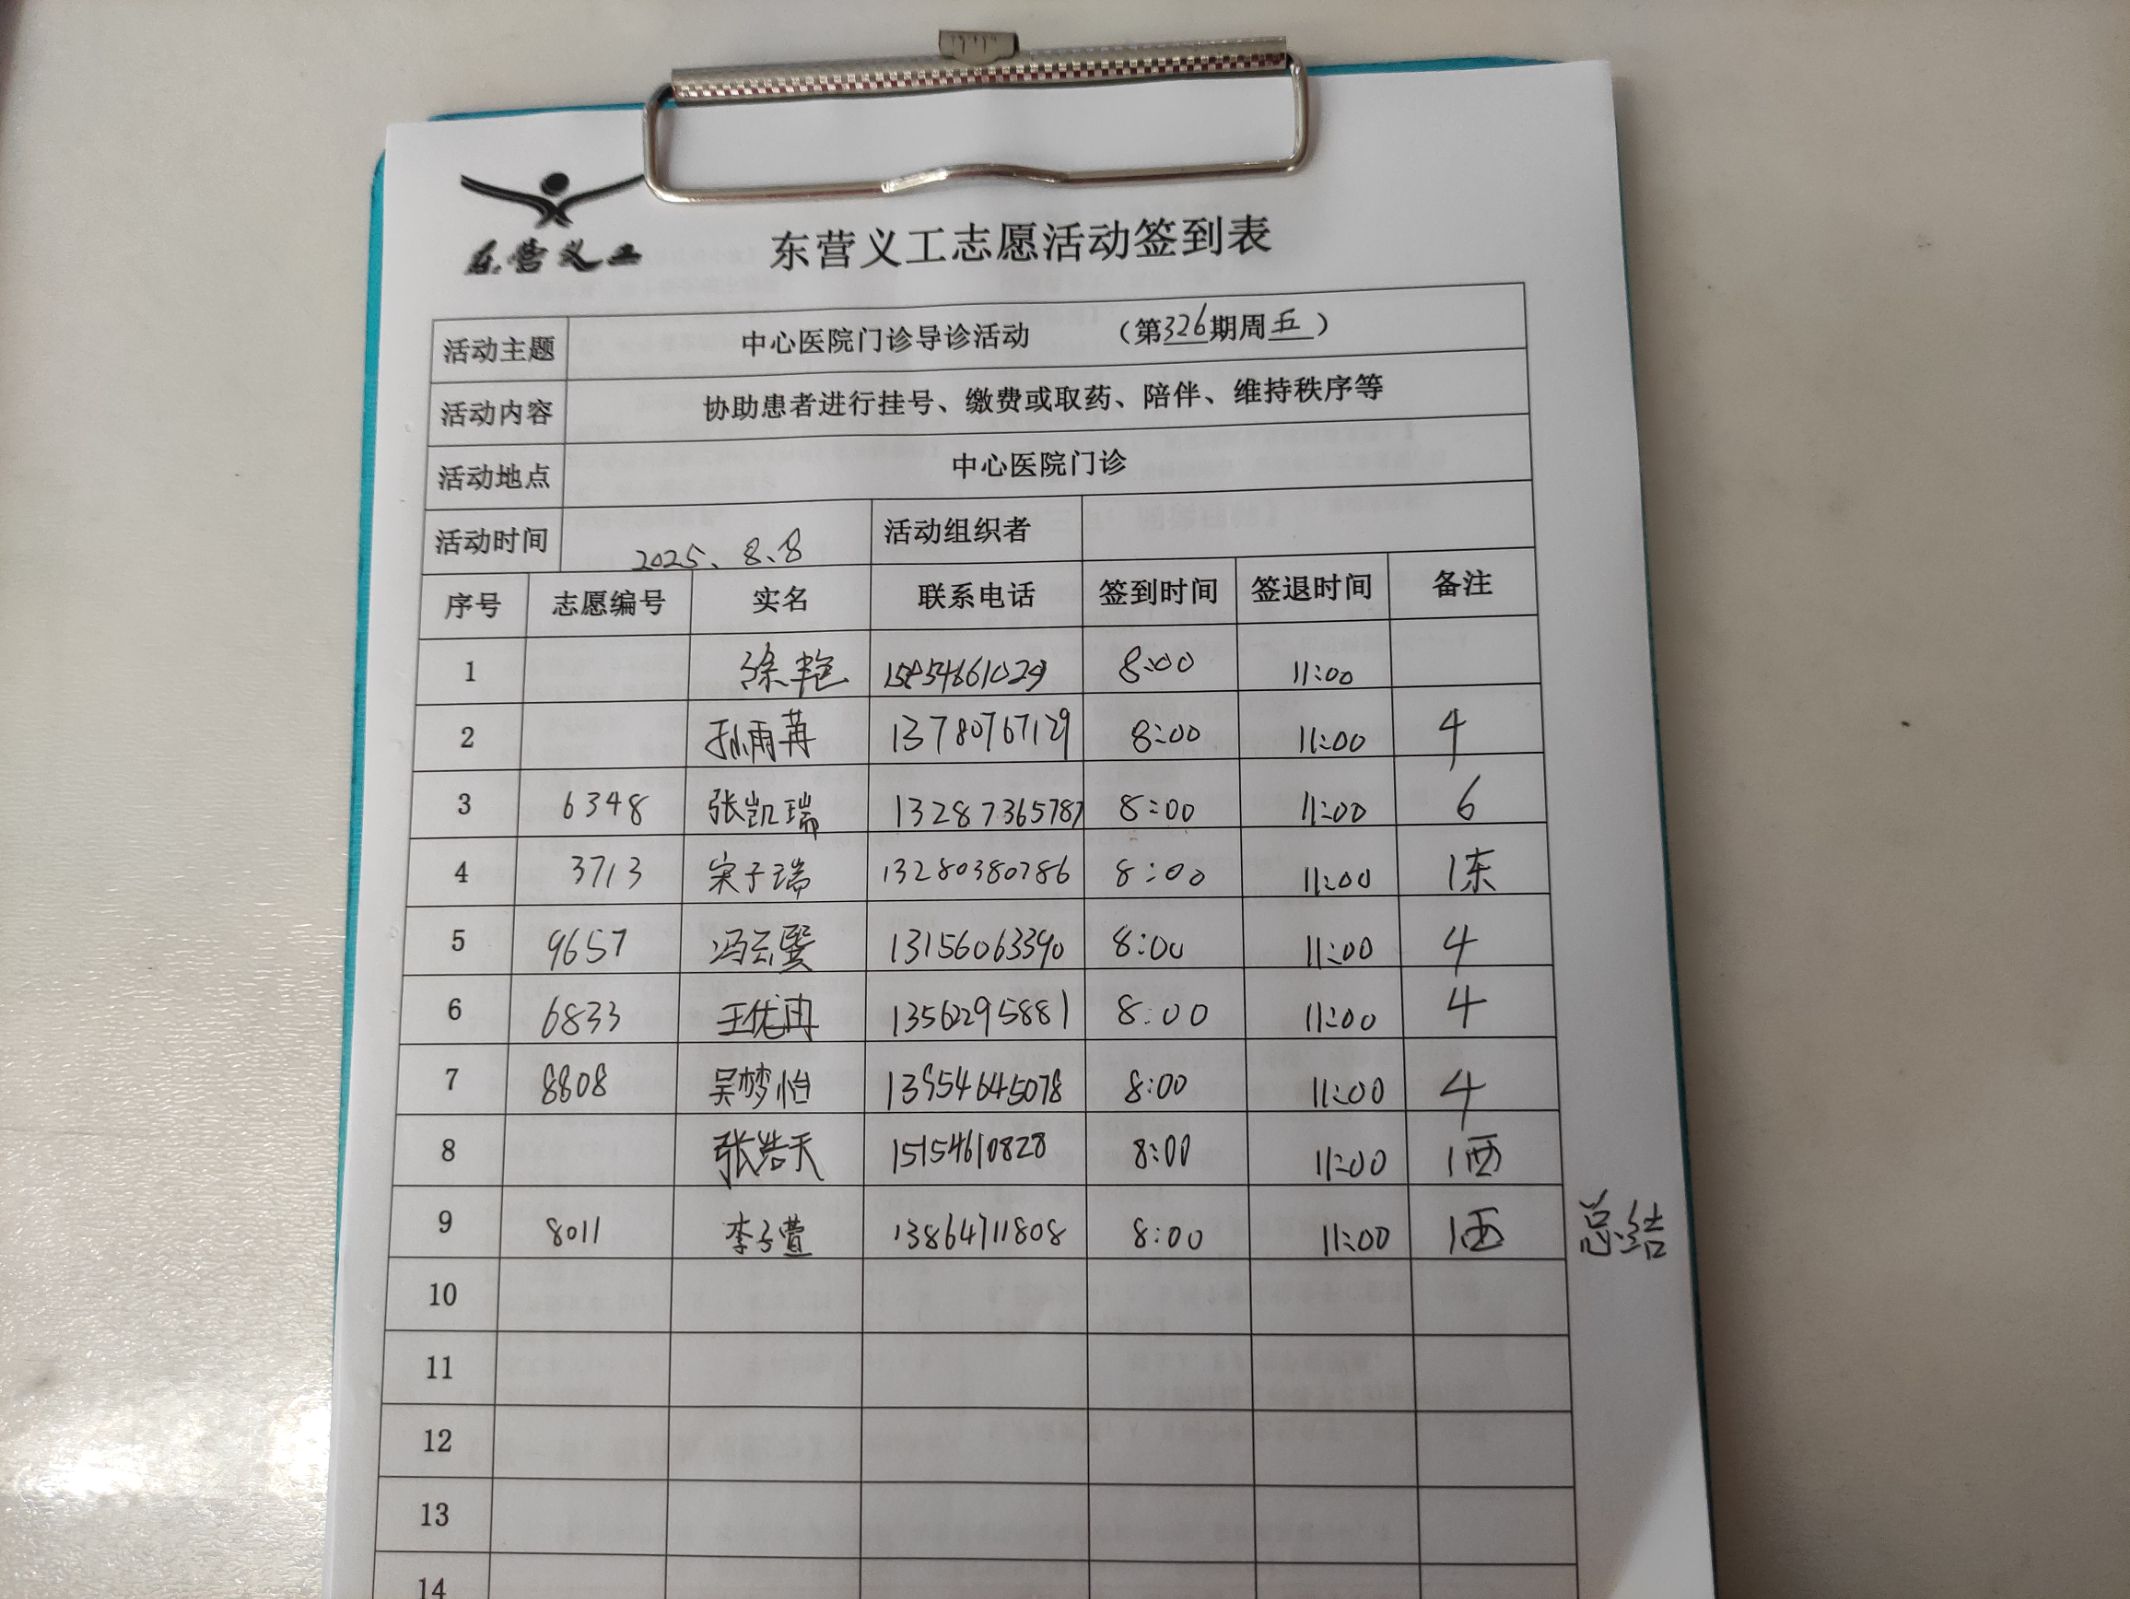 东营义工
东营义工志愿活动签到表
活动主题 中心医院门诊导诊活动 （第326期周五）
活动内容 协助患者进行挂号、缴费或取药、陪伴、维持秩序等
活动地点 中心医院门诊
活动时间 2025、8、8 活动组织者
序号 志愿编号 实名 联系电话 签到时间 签退时间 备注
1 徐艳 15854661029 8:00 11:00
2 孙雨苒 13780767129 8:00 11:00 4
3 6348 张凯瑞 13287365787 8:00 11:00 6
4 3713 宋子瑞 13280380786 8:00 11:00 1东
5 9657 冯云 13156063390 8:00 11:00 4
6 6833 王优冉 13562295881 8:00 11:00 4
7 8808 吴梦怡 13954645078 8:00 11:00 4
8 张浩天 15154610828 8:00 11:00 1西
9 8011 李子萱 13864711808 8:00 11:00 1西 总结
10
11
12
13
14